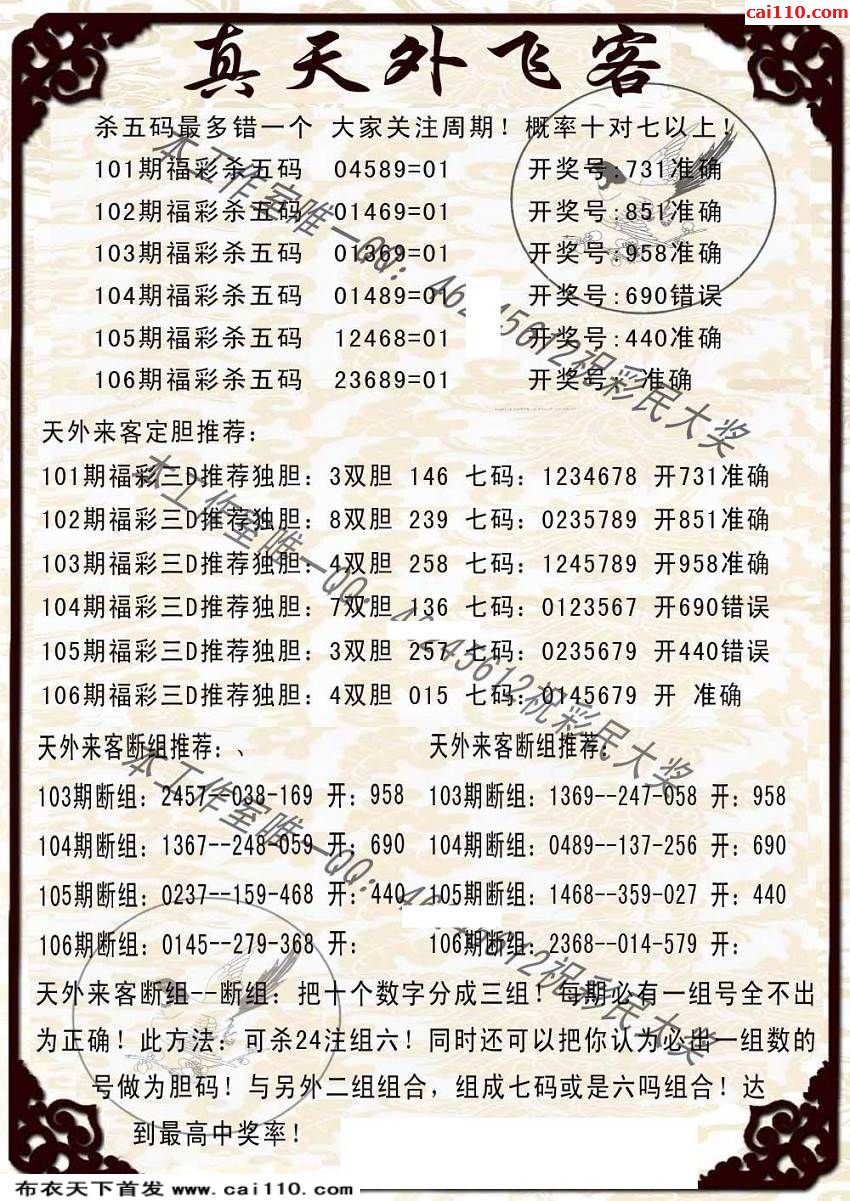 cai110.com
真天外飞客
杀五码最多错一个 大家关注周期！概率十对七以上！
101期福彩杀五码 04589=01 开奖号:731准确
102期福彩杀五码 01469=01 开奖号:851准确
103期福彩杀五码 01369=01 开奖号:958准确
104期福彩杀五码 01489=01 开奖号:690错误
105期福彩杀五码 12468=01 开奖号:440准确
106期福彩杀五码 23689=01 开奖号: 准确
天外来客定胆推荐：
101期福彩三D推荐独胆：3双胆 146 七码：1234678 开731准确
102期福彩三D推荐独胆：8双胆 239 七码：0235789 开851准确
103期福彩三D推荐独胆：4双胆 258 七码：1245789 开958准确
104期福彩三D推荐独胆：7双胆 136 七码：0123567 开690错误
105期福彩三D推荐独胆：3双胆 257 七码：0235679 开440错误
106期福彩三D推荐独胆：4双胆 015 七码：0145679 开 准确
天外来客断组推荐：、 天外来客断组推荐：
103期断组：2457--038-169 开：958 103期断组：1369--247-058 开：958
104期断组：1367--248-059 开：690 104期断组：0489--137-256 开：690
105期断组：0237--159-468 开：440 105期断组：1468--359-027 开：440
106期断组：0145--279-368 开： 106期断组：2368--014-579 开：
天外来客断组--断组：把十个数字分成三组！每期必有一组号全不出
为正确！此方法：可杀24注组六！同时还可以把你认为必出一组数的
号做为胆码！与另外二组组合，组成七码或是六吗组合！达
到最高中奖率！
本工作室唯一QQ：46 45612祝彩民大奖
本工作室唯一QQ：46245612祝彩民大奖
本工作室唯一QQ：46 45612祝彩民大奖
布衣天下首发 www.cai110.com